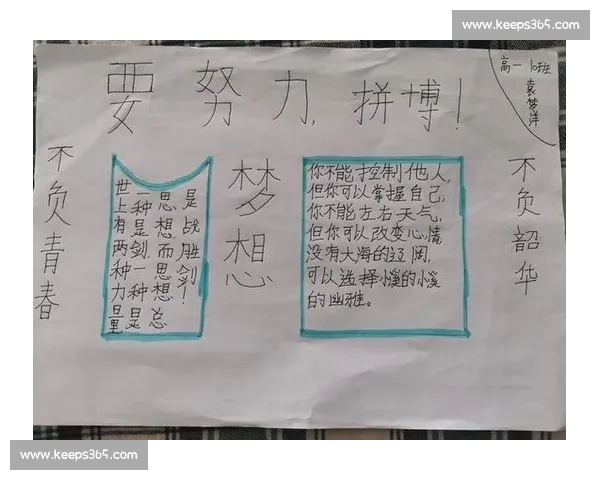 www.keeps365.com
高一 10班
袁梦洋
要努力,拼博!
不负青春
世上有两种力量
一种是剑,一种是
思想,而思想总
是战胜剑!
梦想
你不能控制他人,
但你可以掌握自己;
你不能左右天气,
但你可以改变心情,
没有大海的辽阔,
可以选择小溪的小溪
的幽雅。
不负韶华
www.keeps365.com